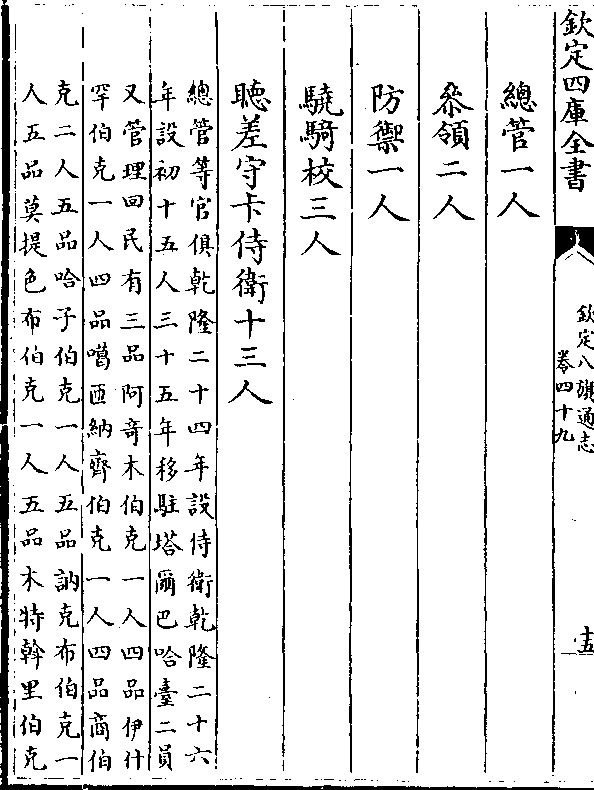 欽定四庫全書
欽定八旗通志
卷四十九
十五
總管一人
叅領二人
防禦一人
驍騎校三人
聽差守卡侍衛十三人
總管等官俱乾隆二十四年設侍衛乾隆二十六
年設初十五人三十五年移駐塔爾巴哈臺二員
又管理回民有三品阿奇木伯克一人四品伊什
罕伯克一人四品噶匝納齊伯克一人四品商伯
克二人五品哈子伯克一人五品訥克布伯克一
人五品莫提色布伯克一人五品木特斡里伯克